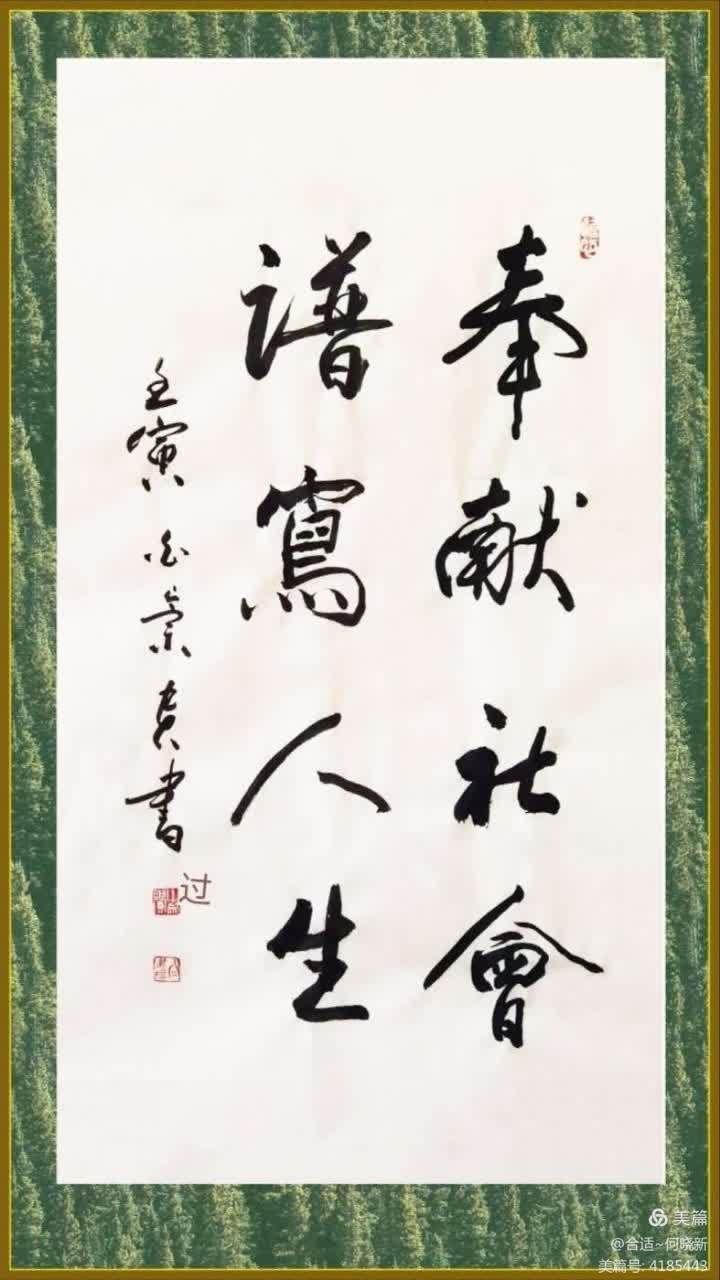 奉献社會
譜寫人生
壬寅 白崇贵書
过
美篇
@合适~何晓新
美篇号: 4185443